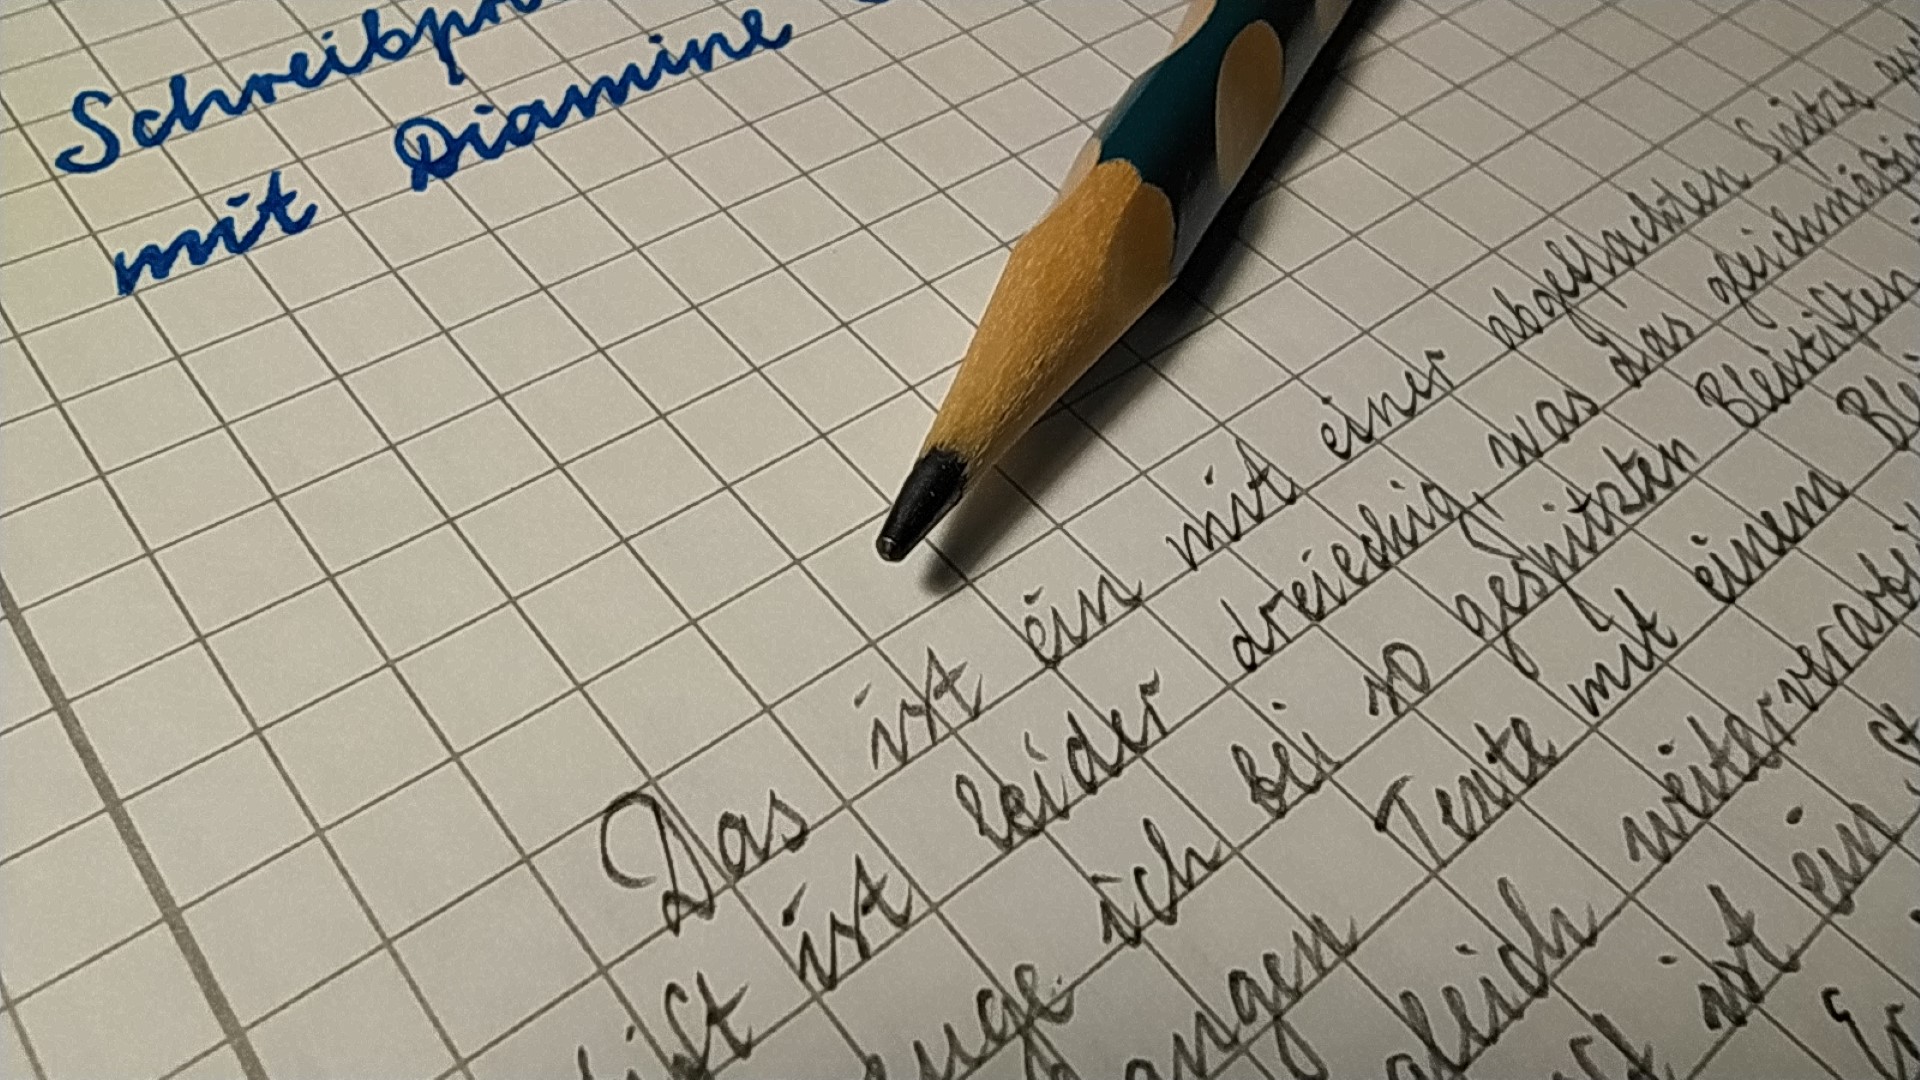 Schreibpr
mit Diamine
Das ist ein mit einer abgeflachten Spitze
ift ist leider dreieckig, was das gleichmäßig
euge ich bei so gespitzten Bleistiften
angen Texte mit einem Blei
gleich weiterverarbei
ist ein
Er